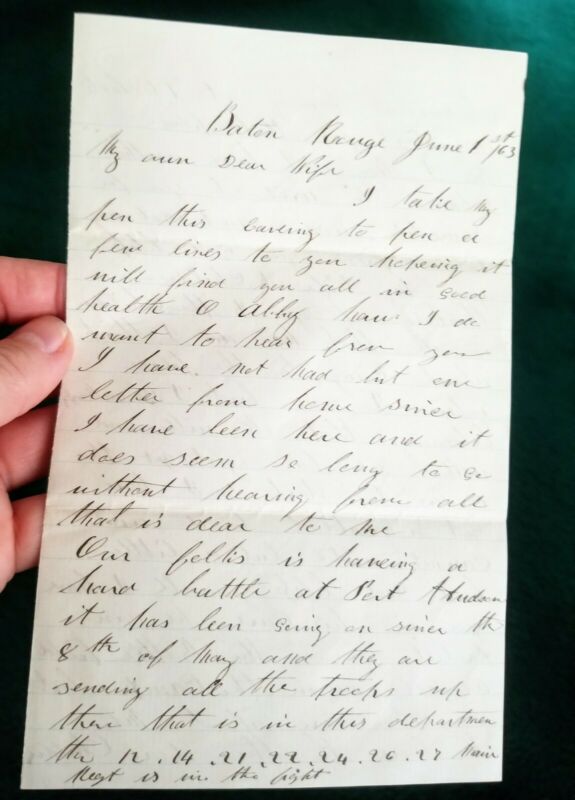 Baton Rouge June 1st /63
My own Dear Wife
I take my
pen this evening to pen a
few lines to you hopeing it
will find you all in good
health O Abby how I do
want to hear from you
I have not had but one
letter from home since
I have been here and it
does seem so long to go
without hearing from all
that is dear to me
Our folks is haveing a
hard battle at Port Hudson
it has been going on since the
8th of May and they are
sending all the troops up
there that is in this departmen
the 12.14.21.22.24.26.27 Main
Regt is in the fight